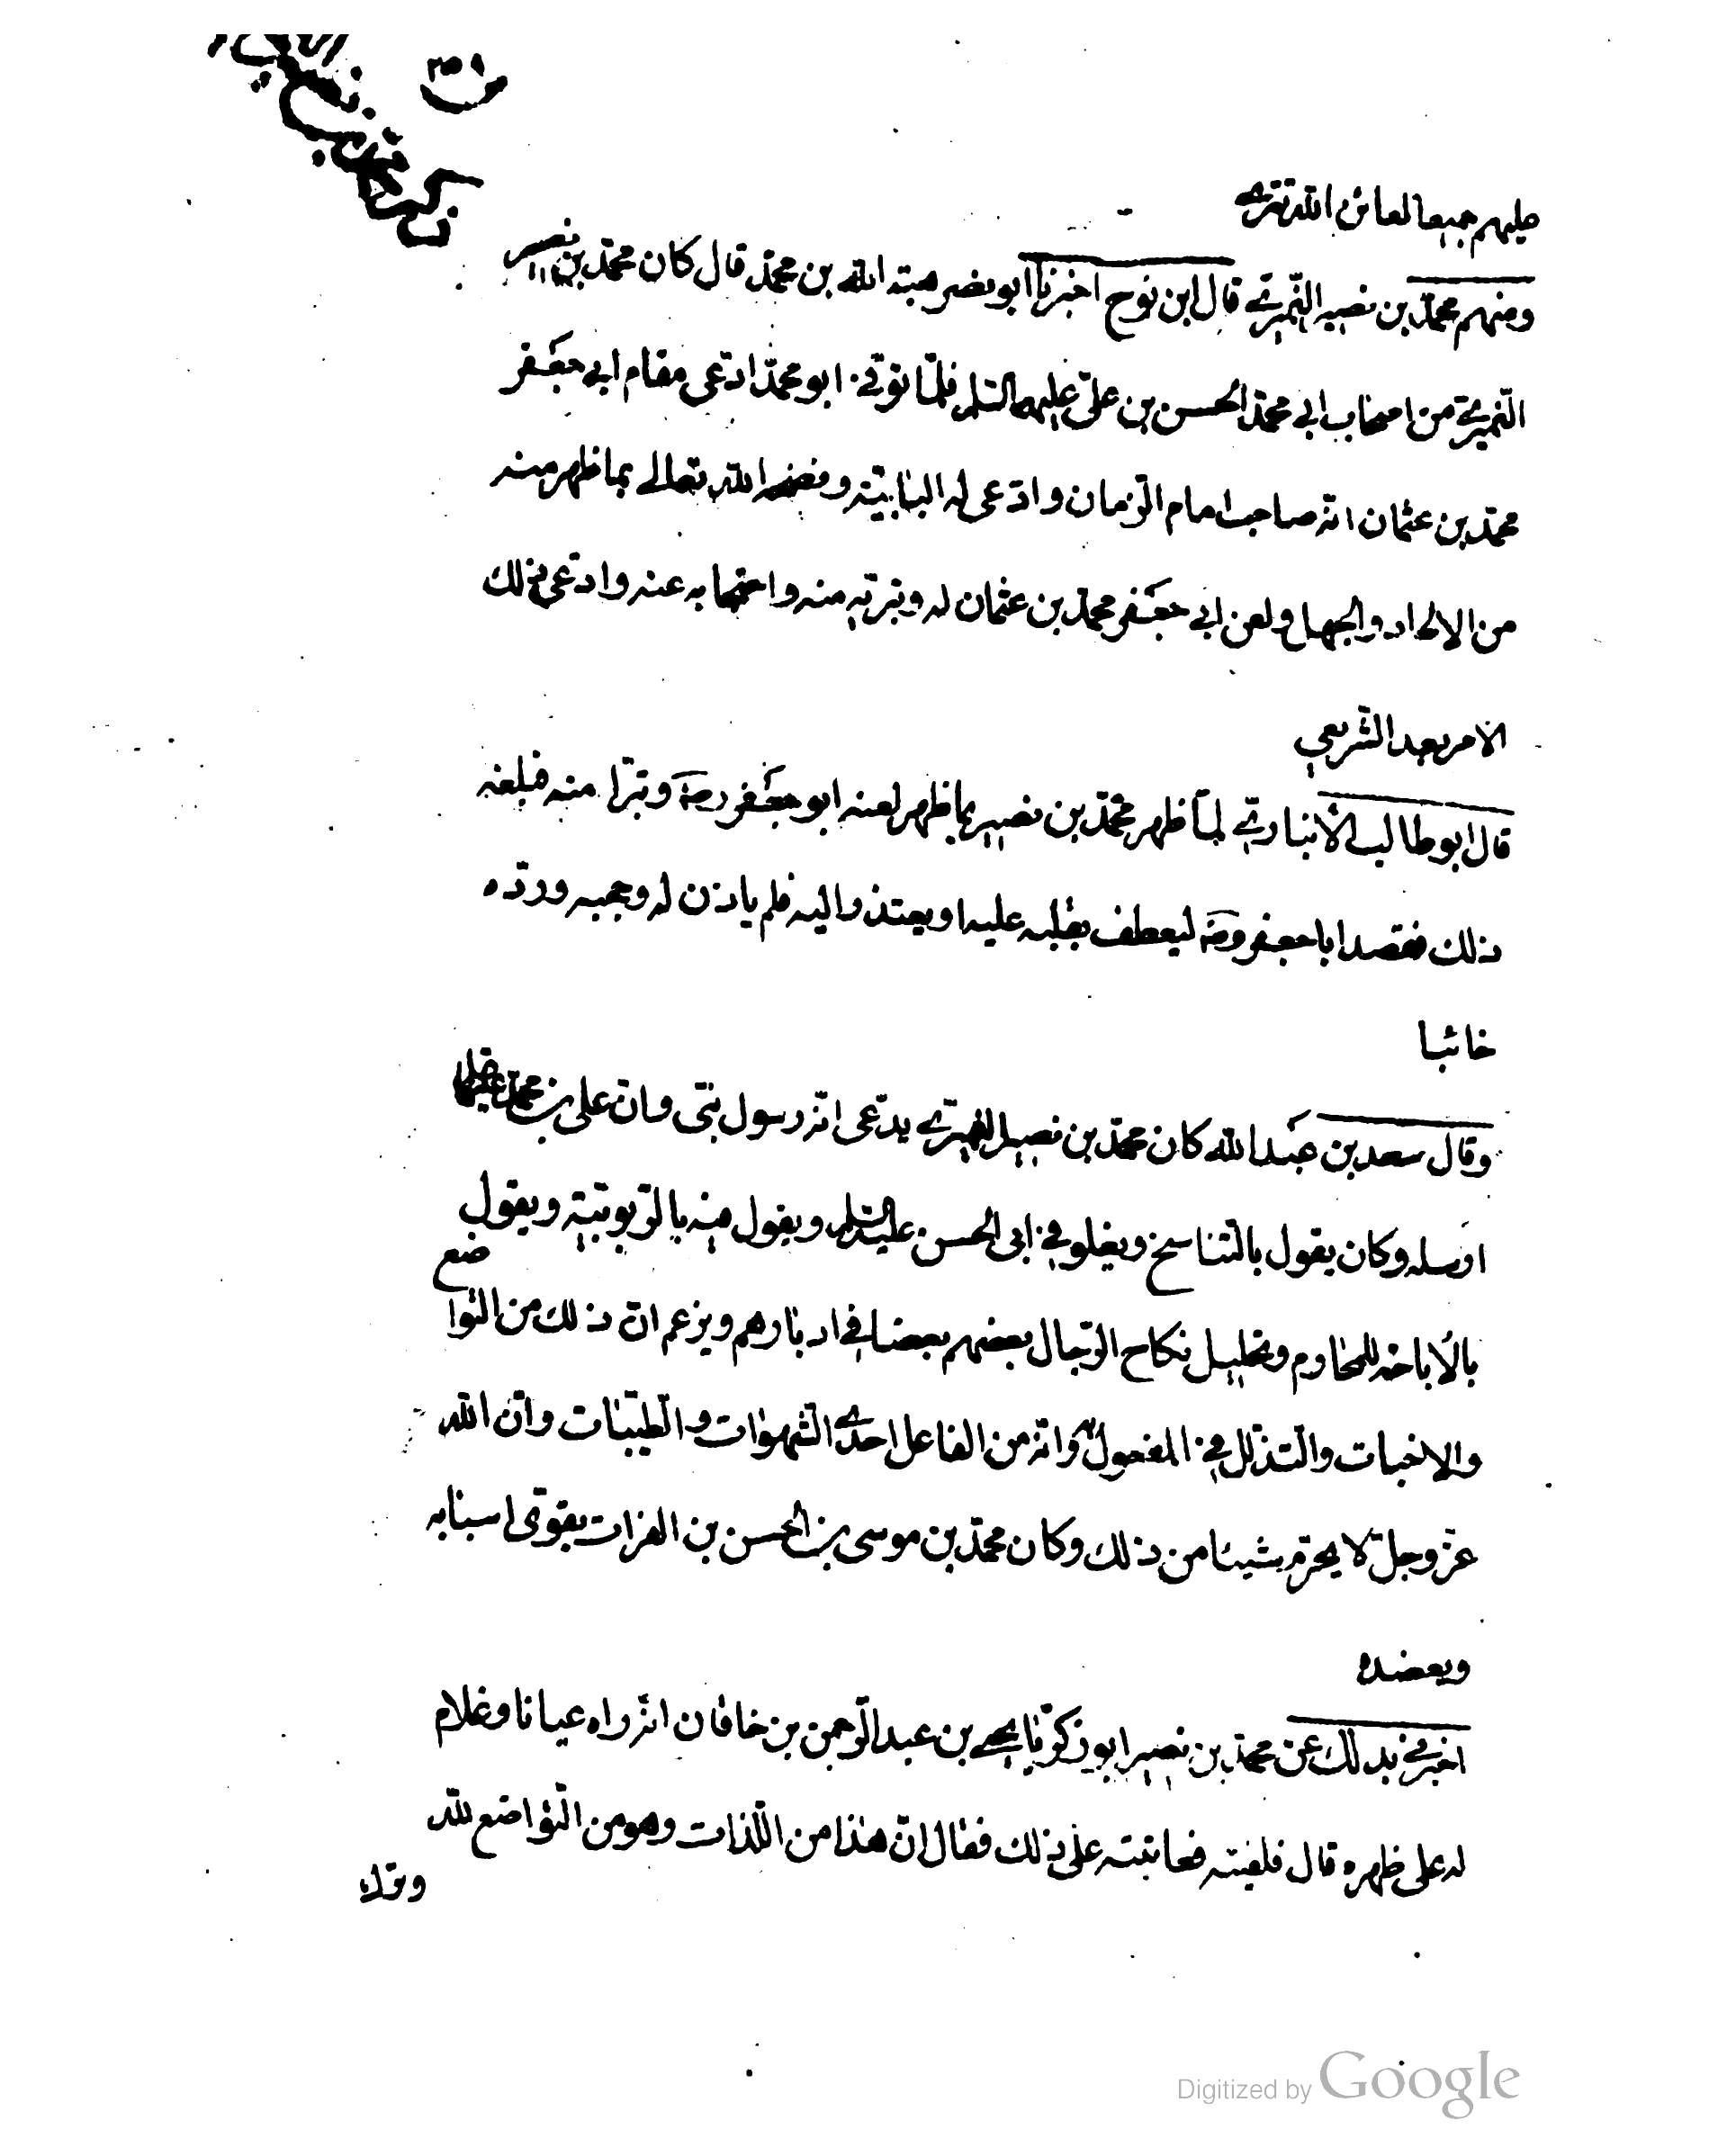 عليهم جميعا لعائن الله تترى
ومنهم محمد بن نصير النميري قال ابن نوح اخبرنا ابو نصر هبة الله بن محمد قال كان محمد بن نصير
النميري من اصحاب ابي محمد الحسن بن علي عليهما السلم فلما توفي ابو محمد ادعى مقام ابي جعفر
محمد بن عثمان انه صاحب امام الزمان وادعى له البابية وفضحه الله تعالى بما ظهر منه
من الالحاد والجهل ولعن ابي جعفر محمد بن عثمان له وتبريه منه واحتجابه عنه وادعى ذلك
الامر بعد الشريعي
قال ابو طالب الأنباري لما ظهر محمد بن نصير بما ظهر لعنه ابو جعفر رضه وتبرا منه فبلغه
ذلك فقصد ابا جعفر رضه ليعطف بقلبه عليه او يعتذر اليه فلم ياذن له وحجبه ورده
خائبا
وقال سعد بن عبد الله كان محمد بن نصير النميري يدعى انه رسول نبى وان على بن محمد عليهما
ارسله وكان يقول بالتناسخ ويغلو في ابى الحسن عليه السلم ويقول فيه بالربوبية ويقول
بالأباحة للمحارم وتحليل نكاح الرجال بعضهم بعضا في ادبارهم ويزعم ان ذلك من التوا ضع
والاخبات والتذلل في المفعول به وانه من الفاعل احدى الشهوات والطيبات وان الله
عز وجل لا يحرم شيئا من ذلك وكان محمد بن موسى بن الحسن بن الفرات يقوى اسبابه
ويعضده
اخبرني بذلك عن محمد بن نصير ابو زكريا يحيى بن عبد الرحمن بن خاقان انه راه عيانا وغلام
له على ظهره قال فلقيته فعاتبته على ذلك فقال ان هذا من اللذات وهو من التواضع لله
وترك
Digitized by Google